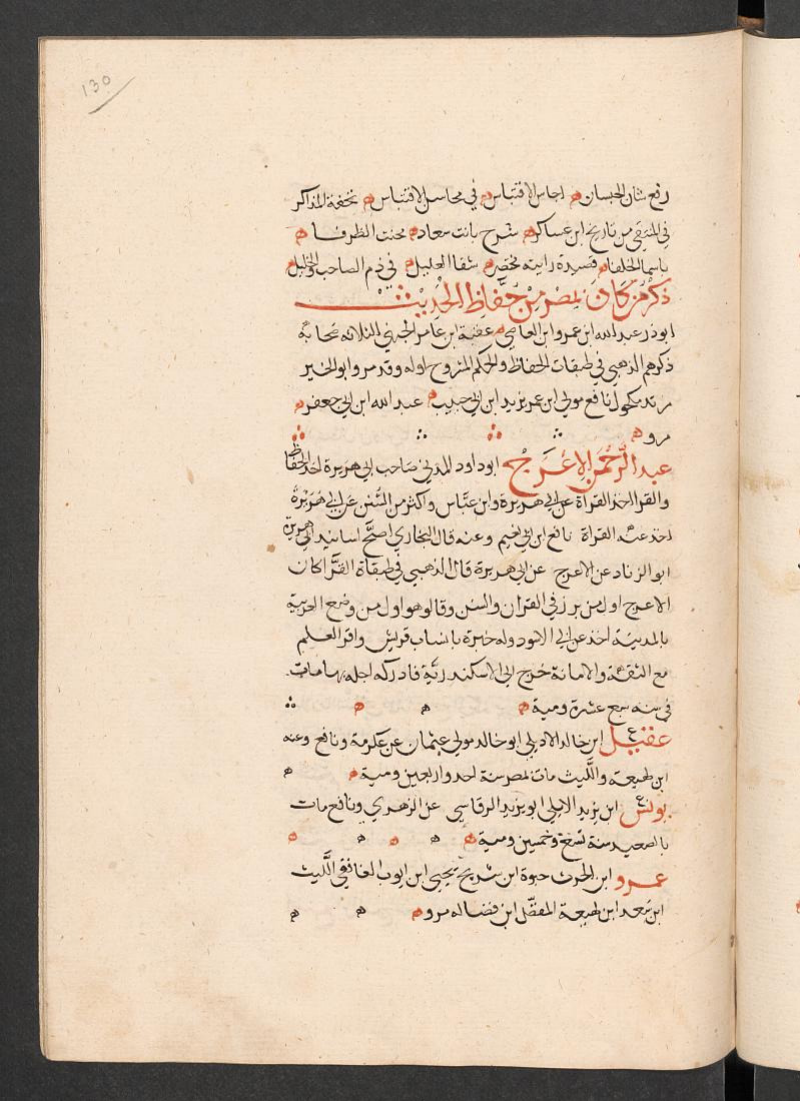 130
رفع شان الحبسان اجناس الاقتباس في محاسن الاقتباس تحفة المذاكر
في المنتقى من تاريخ ابن عساكر شرح بانت سعاد تحفت الظرفا
باسما الخلفا قصيدة راييه مختصر شفا العليل في ذم الصاحب والخليل
ذكر من كان بمصر من حفاظ الحديث
ابو ذر عبد الله ابن عمرو ابن العاصي عقبة ابن عامر الجهني الثلاثه صحابه
ذكرهم الذهبي في طبقات الحفاظ والحكم المشروح اوله وقد مر وابو الخير
مرثد مكحول نافع مولى ابن عمر يزيد ابن ابي حبيب عبد الله ابن ابي جعفر
مرو
عبد الرحمن الاعرج ابو داود المدني صاحب ابي هريرة احد الحفاظ
والقرا اخذ القراة عن ابي هريرة وابن عباس واكثر من السنن عن ابي هريرة
اخذ عنه القراة نافع ابن ابي نعيم وعنه قال البخاري اصح اسانيد ابي هريرة
ابو الزناد عن الاعرج عن ابي هريرة قال الذهبي في طبقاة القرا كان
الاعرج اول من برز في القران والسنن وقالو هو اول من وضع العربية
بالمدينة اخذ عن ابي الاسود وله خبرة بانساب قريش وافر العلم
مع الثقة والامانة خرج الى الاسكندرية فادركه اجله بها مات
في سنه سبع عشرة ومية
عقيل ابن خالد الايلي ابو خالد مولى عثمان عن عكرمة ونافع وعنه
ابن لهيعة والليث مات بمصر سنة احد واربعين ومية
يونس ابن يزيد الايلي ابو يزيد الرقاسي عن الزهري ونافع مات
بالصعيد سنة تسع وخمسين ومية
عمرو ابن الحرث حيوة ابن شريح يحيى ابن ايوب الغافقي الليث
ابن سعد ابن لهيعة المفضل ابن فضاله مرو